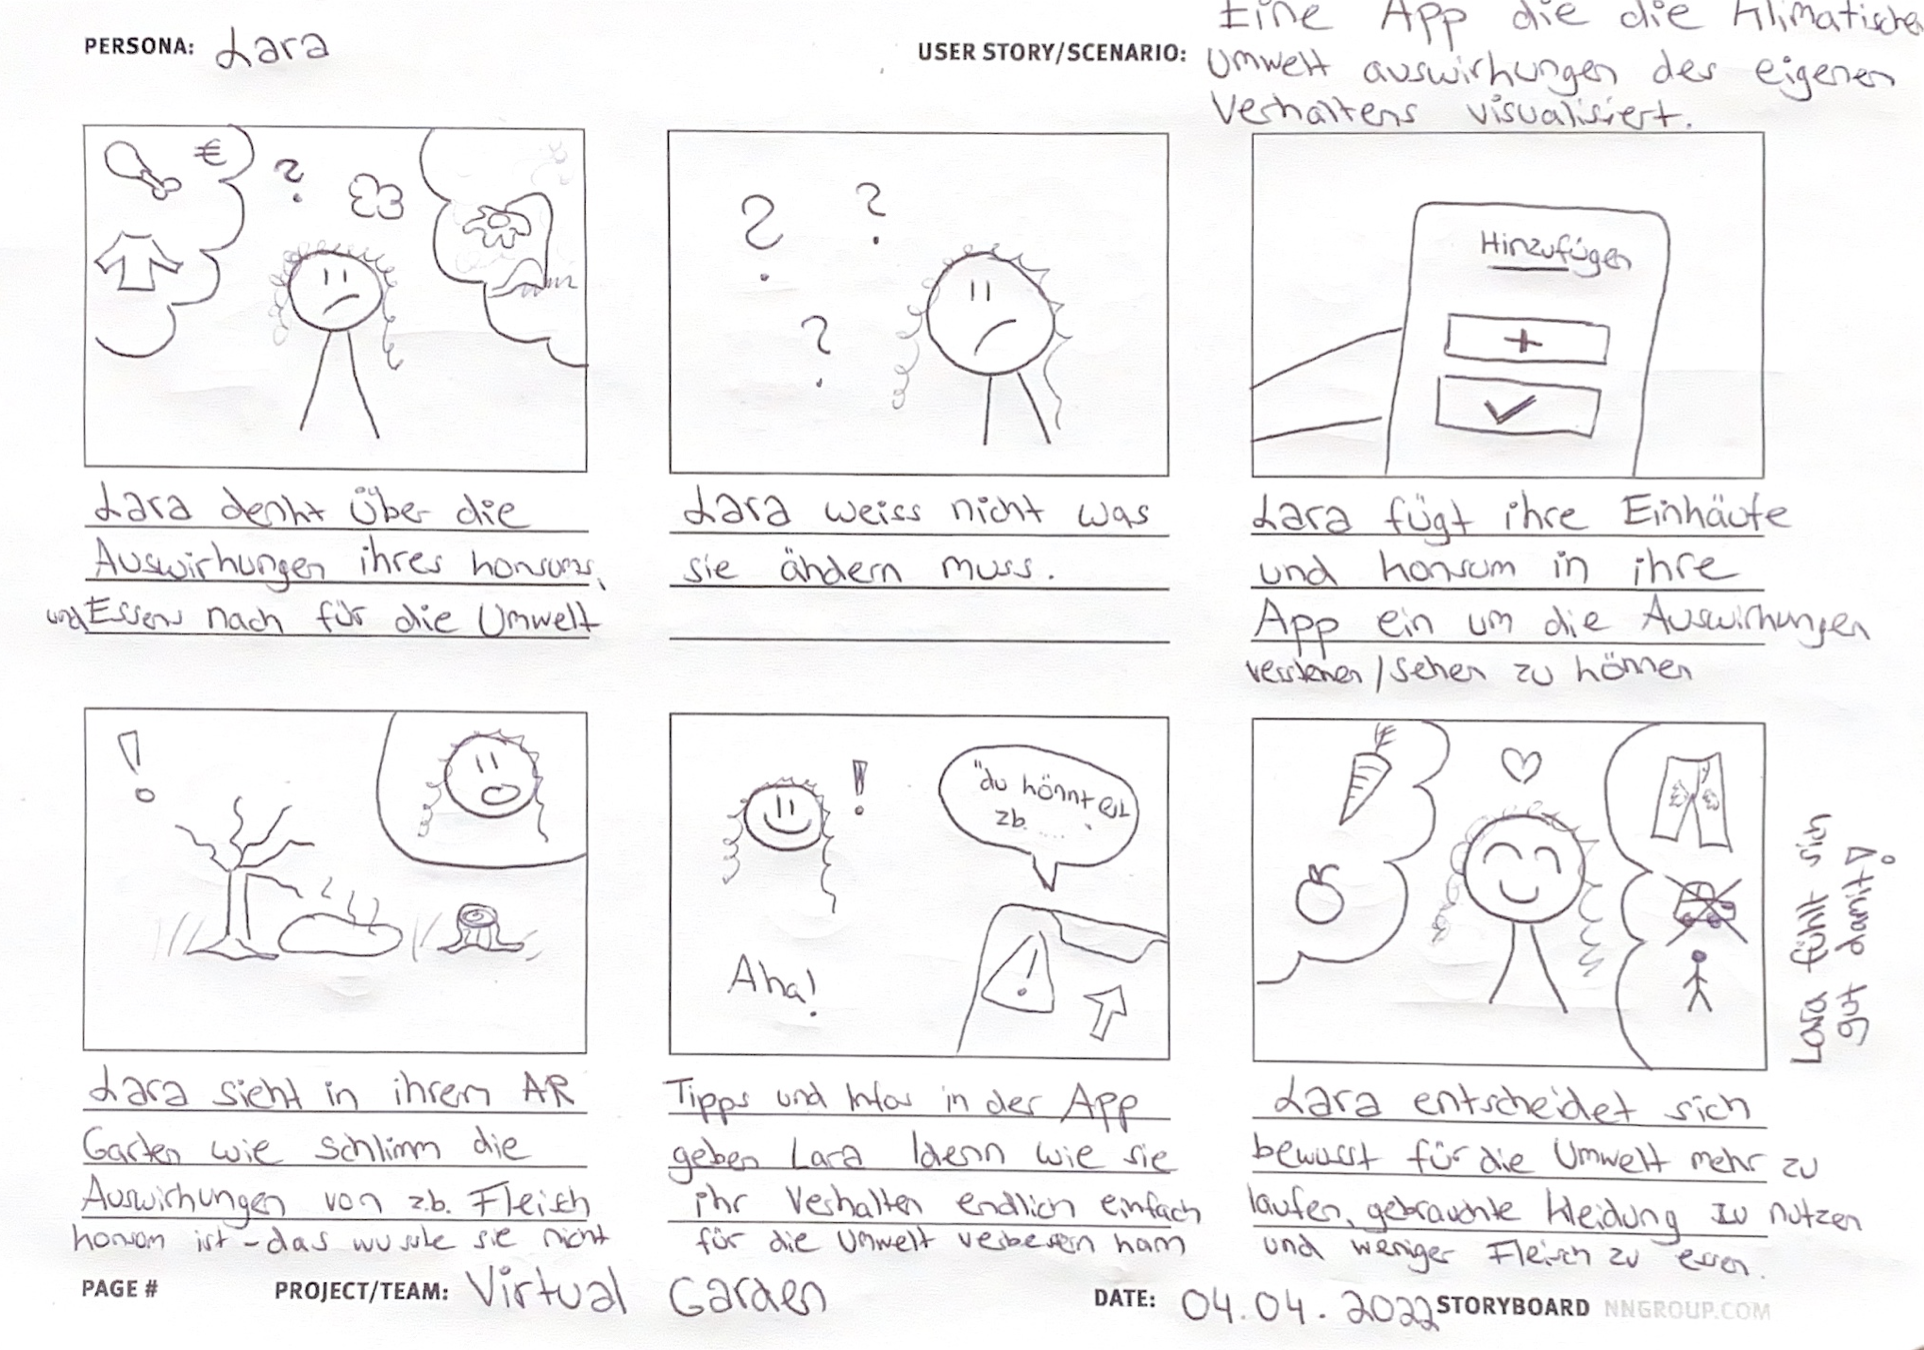 PERSONA: Lara
USER STORY/SCENARIO: Eine App die die Klimatische
Umwelt auswirkungen des eigenen
Verhaltens visualisiert.
€
?
Lara denkt über die
Auswirkungen ihres konsums,
und Essens nach für die Umwelt
? ?
?
Lara weiss nicht was
sie ändern muss.
Hinzufügen
+
✓
Lara fügt ihre Einkäufe
und konsum in ihre
App ein um die Auswirkungen
verstehen / sehen zu können
!
Lara sieht in ihrem AR
Garten wie schlimm die
Auswirkungen von z.b. Fleisch
konsum ist - das wusste sie nicht
!
"du könntest
zb. .....
Aha!
!
Tipps und Infos in der App
geben Lara Idenn wie sie
ihr Verhalten endlich einfach
für die Umwelt verbessern kann
Lara fühlt sich
gut damit!
Lara entscheidet sich
bewusst für die Umwelt mehr zu
laufen, gebrauchte Kleidung zu nutzen
und weniger Fleisch zu essen.
PAGE # PROJECT/TEAM: Virtual Garden DATE: 04.04.2022 STORYBOARD NNGROUP.COM